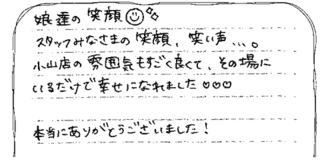 娘達の笑顔☺✨
スタッフみなさまの笑顔、笑い声...。
小山店の雰囲気もすごく良くて、その場に
いるだけで幸せになれました♡♡♡
本当にありがとうございました！